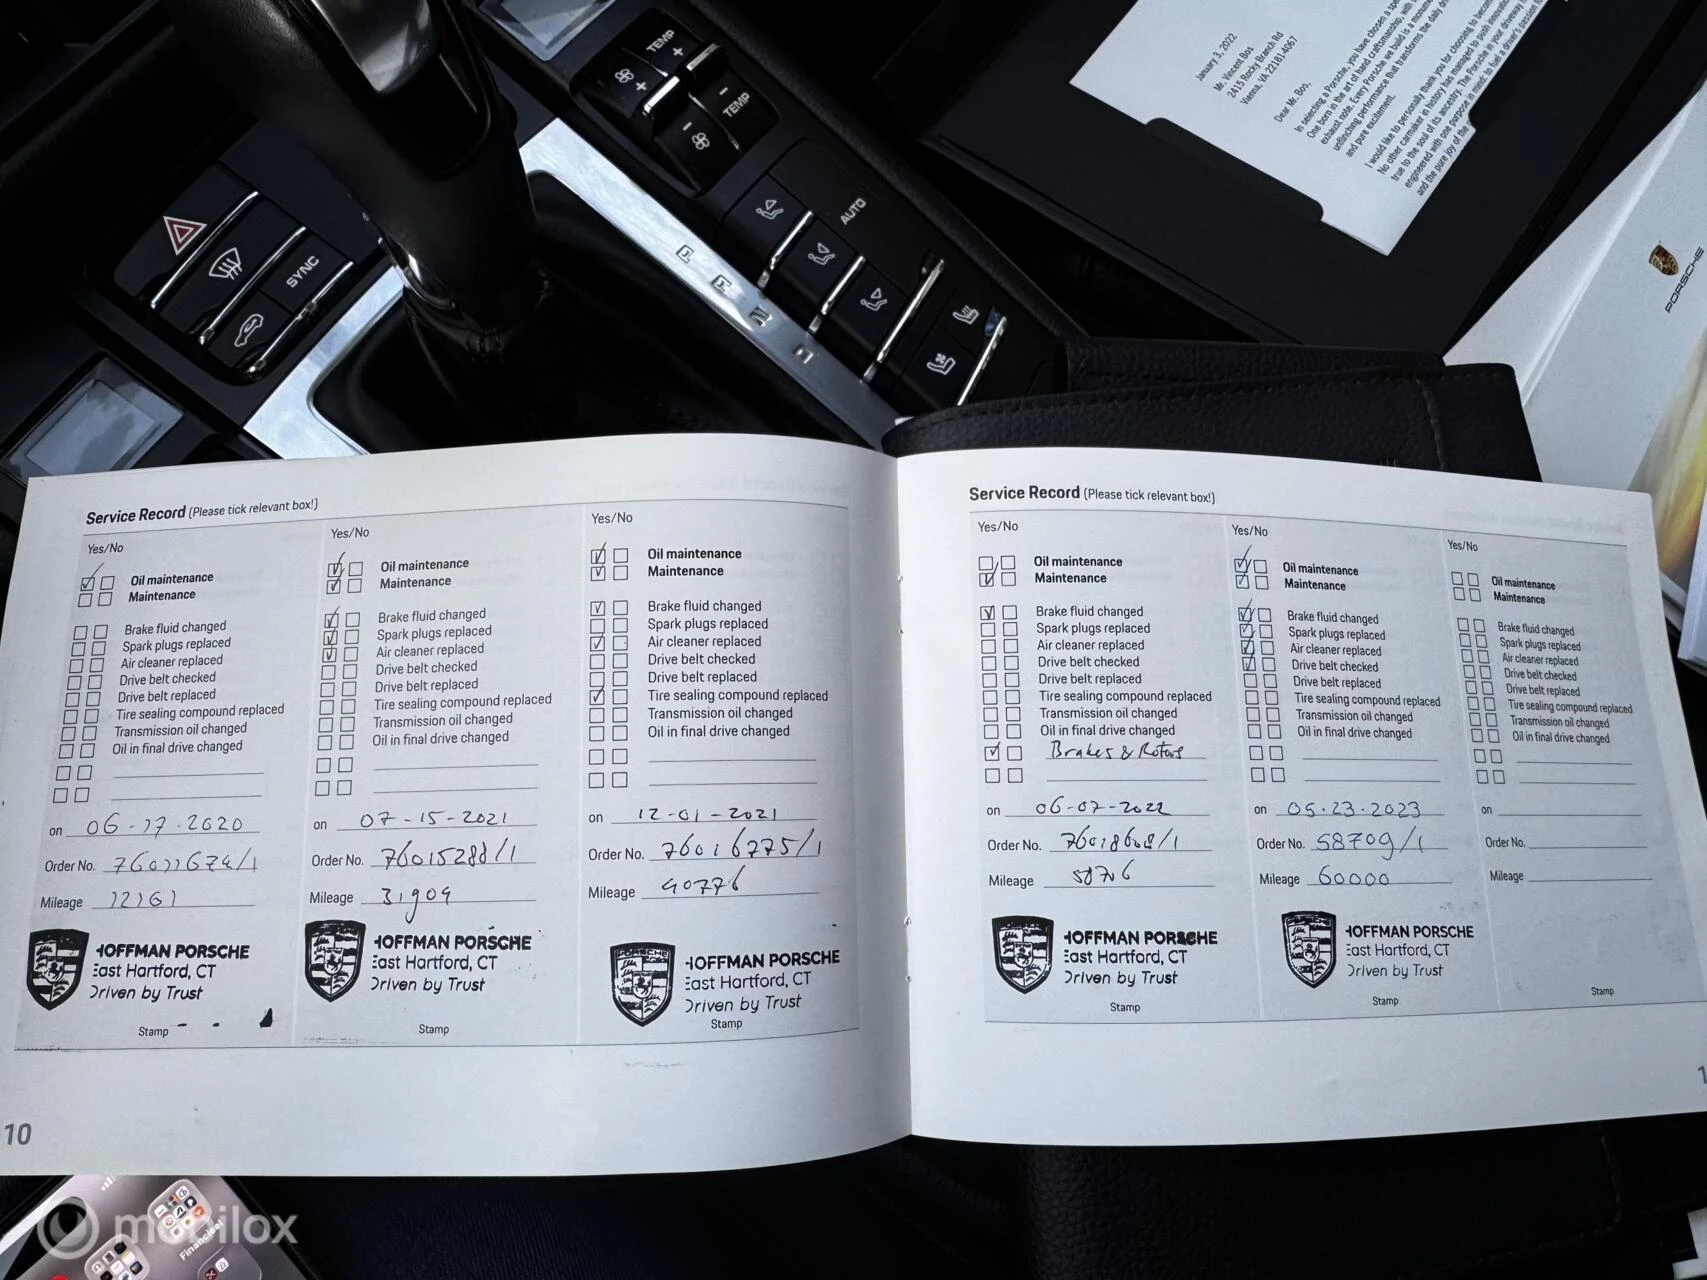 TEMP
TEMP
AUTO
SYNC
January 3, 2022
Mr. Vincent Bos
2415 Rocky Branch Rd
Vienna, VA 22181-4067
Dear Mr. Bos,
In selecting a Porsche, you have chosen a
One born in the art of hand craftsmanship, with
exhaust note. Every Porsche we build is a
unflinching performance that transforms the daily
and pure excitement.
I would like to personally thank you for choosing to
No other carmaker in history has managed to push
true to the soul of its ancestry. The Porsche in your driveway
engineered with one purpose in mind: to fuel a driver's passion
and the pure joy of the
PORSCHE
Service Record (Please tick relevant box!)
Yes/No
Oil maintenance
Maintenance
Brake fluid changed
Spark plugs replaced
Air cleaner replaced
Drive belt checked
Drive belt replaced
Tire sealing compound replaced
Transmission oil changed
Oil in final drive changed
on 06-17-2020
Order No.
Mileage 12161
HOFFMAN PORSCHE
East Hartford, CT
Driven by Trust
Stamp
Yes/No
Oil maintenance
Maintenance
Brake fluid changed
Spark plugs replaced
Air cleaner replaced
Drive belt checked
Drive belt replaced
Tire sealing compound replaced
Transmission oil changed
Oil in final drive changed
on 07-15-2021
Order No. 76015288/1
Mileage 31909
HOFFMAN PORSCHE
East Hartford, CT
Driven by Trust
Stamp
Yes/No
Oil maintenance
Maintenance
Brake fluid changed
Spark plugs replaced
Air cleaner replaced
Drive belt checked
Drive belt replaced
Tire sealing compound replaced
Transmission oil changed
Oil in final drive changed
on 12-01-2021
Order No. 76016775/1
Mileage 40776
HOFFMAN PORSCHE
East Hartford, CT
Driven by Trust
Stamp
10
Service Record (Please tick relevant box!)
Yes/No
Oil maintenance
Maintenance
Brake fluid changed
Spark plugs replaced
Air cleaner replaced
Drive belt checked
Drive belt replaced
Tire sealing compound replaced
Transmission oil changed
Oil in final drive changed
Brakes & Rotors
on 06-07-2022
Order No. 76018608/1
Mileage
HOFFMAN PORSCHE
East Hartford, CT
Driven by Trust
Stamp
Yes/No
Oil maintenance
Maintenance
Brake fluid changed
Spark plugs replaced
Air cleaner replaced
Drive belt checked
Drive belt replaced
Tire sealing compound replaced
Transmission oil changed
Oil in final drive changed
on 05.23.2023
Order No. 58709/1
Mileage 60000
HOFFMAN PORSCHE
East Hartford, CT
Driven by Trust
Stamp
Yes/No
Oil maintenance
Maintenance
Brake fluid changed
Spark plugs replaced
Air cleaner replaced
Drive belt checked
Drive belt replaced
Tire sealing compound replaced
Transmission oil changed
Oil in final drive changed
on
Order No.
Mileage
Stamp
Financieel
mobilox